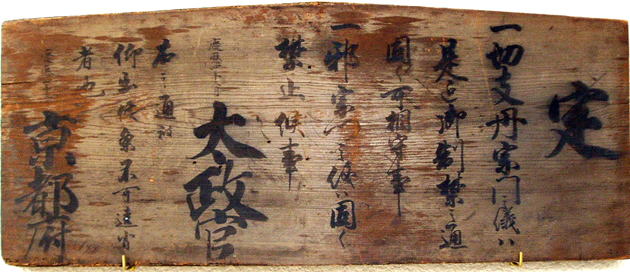 定
一切支丹宗門之儀ハ
是迄御制禁之通
固ク可相守事
一邪宗門之儀ハ固ク
禁止候事
慶應
太政官
右之通被
仰出候条不可違背
者也
京都府